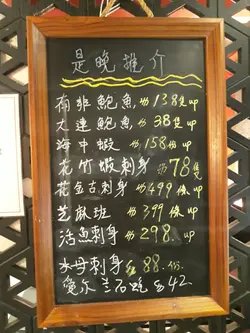 是晚推介
南非鮑魚 $138隻 up
大連鮑魚 $38隻 up
海中蝦 $158份 up
花竹蝦刺身 $78隻
花金古刺身 $499條 up
芝麻班 $399條 up
活魚刺身 $298. up
水母刺身 $88.份.
愛尔兰石蠔 $42